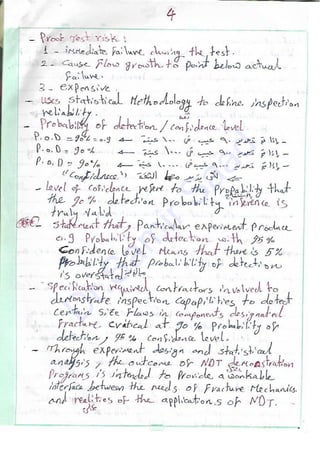 4
- Proof Test risk :
1 - immediate failure during the test.
2 - cause flow growth to point below actual
failure.
3 - expensive
- uses statistical Methodology to define inspection
reliability.
- Probability of detection / confidence level
P.o.D = 90% = 0.9
P.o.D = 90%
P.o.D = 90%
"Confidence"
- level of confidence refers to the Propability that
the 90% detection Probability inference is
truly valid.
- Statement that, Particular experiment Produce
0.9 Probability of detection with 95%
Confidence level Means that there is 5%
Probability that probability of detection
is overstated
- Specification required, contractors involved to
demonstrate inspection Capapilities to detect
Certain Size Flaws in components designated
Fracture critical at 90% Probability of
detection, 95% confidence level.
- Through experiment design and statistical
analysis, the outcome of NDT demonstration
Programs is intended to Provide a workable
interface between the needs of Fracture Mechanics
and realities of the applications of NDT.